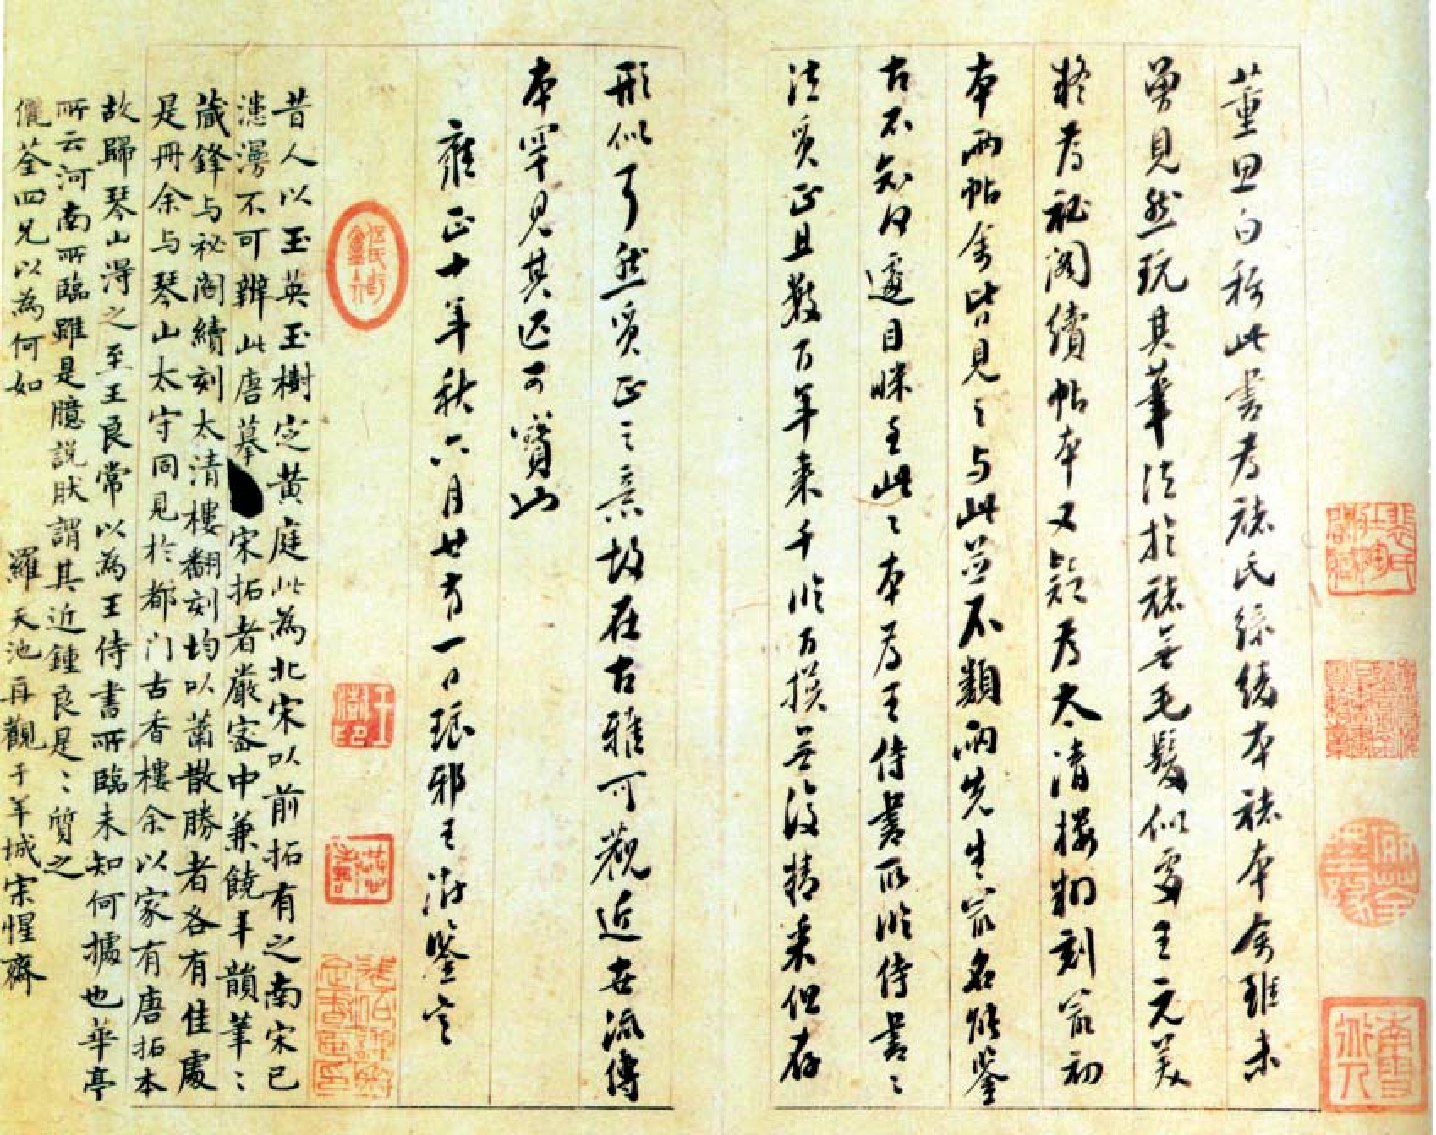 董思白稱此書為褚氏綠綺本褚本余雖未
曾見然玩其筆法於褚無毛髮似處王元美
称為秘閣續帖本又疑為太清樓翻刻寂初
本兩帖余皆見之與此並不類兩先生寂名能鑒
古不知何遽目眯至此〻本為王侍書所臨侍書〻
法質正且數百年來千臨万摸無復精采但存
形似了然質正之意故在古雅可觀近世流傳
本罕見其匹可寶也
雍正十年秋六月廿有一日琅邪王澍鑒定
昔人以玉英玉樹定黃庭此為北宋以前拓有之南宋已
漶漫不可辨此唐摹宋拓者嚴密中兼饒丰韻筆〻
藏鋒与祕閣續刻太清樓翻刻均以蕭散勝者各有佳處
是冊余与琴山太守同見於都门古香樓余以家有唐拓本
故歸琴山得之至王良常以為王侍書所臨未知何據也華亭
所云河南所臨雖是臆說肰謂其近鍾良是〻質之
儷荃四兄以為何如
羅天池再觀于羊城宋惺齋